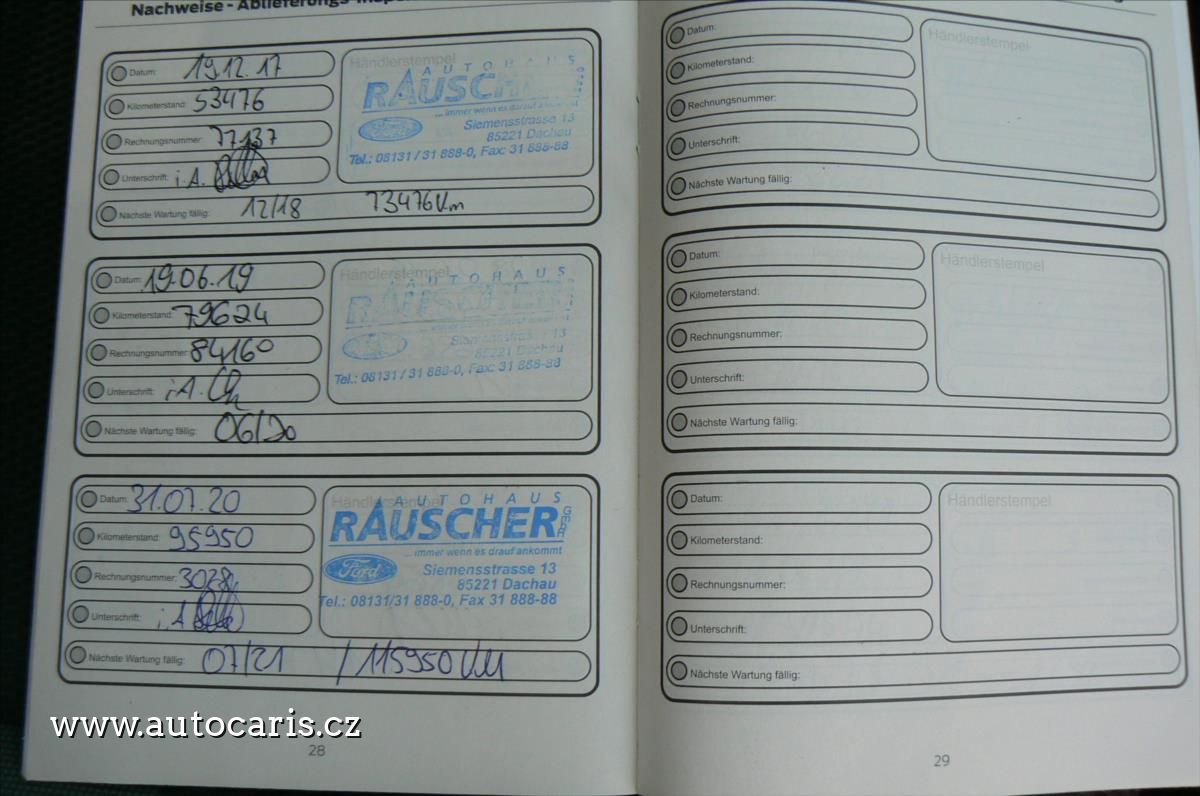 Nachweise - Ablieferungs-Inspe
Datum: 19.12.17
Kilometerstand: 53476
Rechnungsnummer: 77137
Unterschrift: i.A.
Nächste Wartung fällig: 12/18 73476 Km
Händlerstempel
AUTOHAUS
RAUSCH
...immer wenn es darauf ankommt
Ford
Siemensstrasse 13
85221 Dachau
Tel.: 08131 / 31 888-0, Fax: 31 888-88
Datum: 19.06.19
Kilometerstand: 79624
Rechnungsnummer: 84160
Unterschrift: i.A.
Nächste Wartung fällig: 06/20
Händlerstempel
AUTOHAUS
RAUSCHER
Siemensstrasse 13
85221 Dachau
Tel.: 08131 / 31 888-0, Fax: 31 888-88
Datum: 31.07.20
Kilometerstand: 95950
Rechnungsnummer:
Unterschrift: i.A.
Nächste Wartung fällig: 07/21 / 115950 KM
Händlerstempel
AUTOHAUS
RAUSCHER GmbH
...immer wenn es drauf ankommt
Ford
Siemensstrasse 13
85221 Dachau
Tel.: 08131/31 888-0, Fax 31 888-88
www.autocaris.cz
28
Datum:
Kilometerstand:
Rechnungsnummer:
Unterschrift:
Nächste Wartung fällig:
Händlerstempel
Datum:
Kilometerstand:
Rechnungsnummer:
Unterschrift:
Nächste Wartung fällig:
Händlerstempel
Datum:
Kilometerstand:
Rechnungsnummer:
Unterschrift:
Nächste Wartung fällig:
Händlerstempel
29